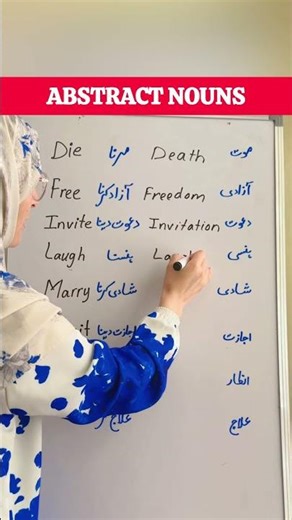 ABSTRACT NOUNS
Die مرنا Death موت
Free آزاد کرنا Freedom آزادی
Invite دعوت دینا Invitation دعوت
Laugh ہنسنا La ہنسی
Marry شادی کرنا شادی
اجازت دینا اجازت
انتظار
علاج علاج